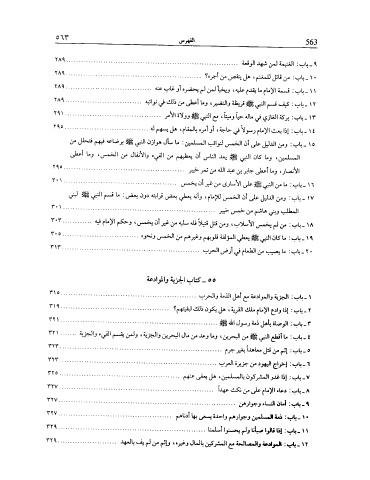 ٥٦٣ الفهرس 563
٩ ـ باب: الغنيمة لمن شهد الوقعة ٢٨٩
١٠ ـ باب: من قاتل للمغنم، هل ينقص من أجره؟ ٢٨٩
١١ ـ باب: قسمة الإمام ما يقدم عليه، ويخبأ لمن لم يحضره أو غاب عنه ٢٨٩
١٢ ـ باب: كيف قسم النبي ﷺ قريظة والنضير، وما أعطى من ذلك في نوائبه ٢٨٩
١٣ ـ باب: بركة الغازي في ماله حياً وميتاً، مع النبي ﷺ وولاة الأمر ٢٩١
١٤ ـ باب: إذا بعث الإمام رسولاً في حاجة، أو أمره بالمقام، هل يسهم له ٢٩٥
١٥ ـ باب: ومن الدليل على أن الخمس لنوائب المسلمين: ما سأل هوازن النبي ﷺ برضاعه فيهم فتحلل من
المسلمين، وما كان النبي ﷺ يعد الناس أن يعطيهم من الفيء والأنفال من الخمس، وما أعطى
الأنصار، وما أعطى جابر بن عبد الله من تمر خيبر ٢٩٥
١٦ ـ باب: ما من النبي ﷺ على الأسارى من غير أن يخمس ٣٠١
١٧ ـ باب: ومن الدليل على أن الخمس للإمام، وأنه يعطي بعض قرابته دون بعض: ما قسم النبي ﷺ لبني
المطلب وبني هاشم من خمس خيبر ٣٠١
١٨ ـ باب: من لم يخمس الأسلاب، ومن قتل قتيلاً فله سلبه من غير أن يخمس، وحكم الإمام فيه ٣٠٣
١٩ ـ باب: ما كان النبي ﷺ يعطي المؤلفة قلوبهم وغيرهم من الخمس ونحوه ٣٠٥
٢٠ ـ باب: ما يصيب من الطعام في أرض الحرب ٣١٣
٥٥ ـ كتاب الجزية والموادعة
١ ـ باب: الجزية والموادعة مع أهل الذمة والحرب ٣١٥
٢ ـ باب: إذا وادع الإمام ملك القرية، هل يكون ذلك لبقيتهم؟ ٣١٩
٣ ـ باب: الوصاة بأهل ذمة رسول الله ﷺ ٣٢١
٤ ـ باب: ما أقطع النبي ﷺ من البحرين، وما وعد من مال البحرين والجزية، ولمن يقسم الفيء والجزية ٣٢١
٥ ـ باب: إثم من قتل معاهداً بغير جرم ٣٢٣
٦ ـ باب: إخراج اليهود من جزيرة العرب ٣٢٣
٧ ـ باب: إذا غدر المشركون بالمسلمين، هل يعفى عنهم ٣٢٥
٨ ـ باب: دعاء الإمام على من نكث عهداً ٣٢٧
٩ ـ باب: أمان النساء وجوارهن ٣٢٧
١٠ ـ باب: ذمة المسلمين وجوارهم واحدة يسعى بها أدناهم ٣٢٧
١١ ـ باب: إذا قالوا صبأنا ولم يحسنوا أسلمنا ٣٢٩
١٢ ـ باب: الموادعة والمصالحة مع المشركين بالمال وغيره، وإثم من لم يف بالعهد ٣٢٩